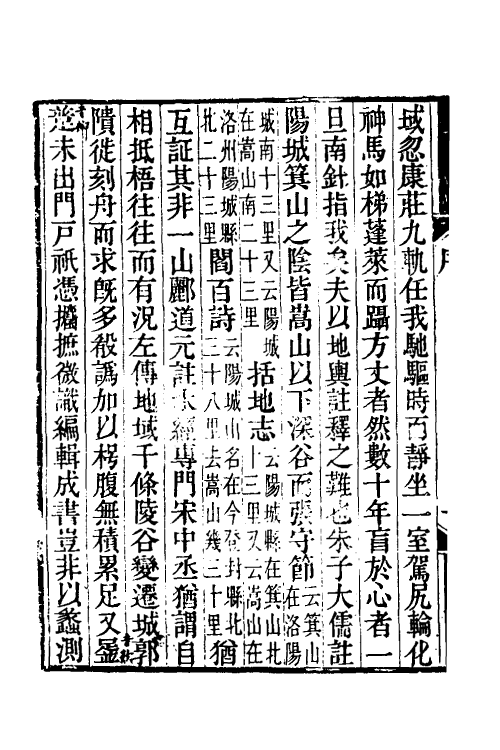 域忽康莊九軌任我馳驅時而靜坐一室駕尻輪化
神馬如梯蓬萊而躡方丈者然數十年盲於心者一
旦南針指我矣夫以地輿註釋之難也朱子大儒註
陽城箕山之陰皆嵩山以下深谷而張守節云箕山在洛陽
城南十三里又云陽城在嵩山南二十三里括地志云陽城縣在箕山北十三里又云嵩山在
洛州陽城縣北二十三里閻百詩云陽城山名在今登封縣北三十八里去嵩山幾三十里猶
互証其非一山酈道元註水經專門宋中丞猶謂自
相抵梧往往而有況左傳地域千條陵谷變遷城郭
隤徙刻舟而求旣多殽譌加以枵腹無積累足又
未出門戶祇憑攟摭微識編輯成書豈非以蠡測